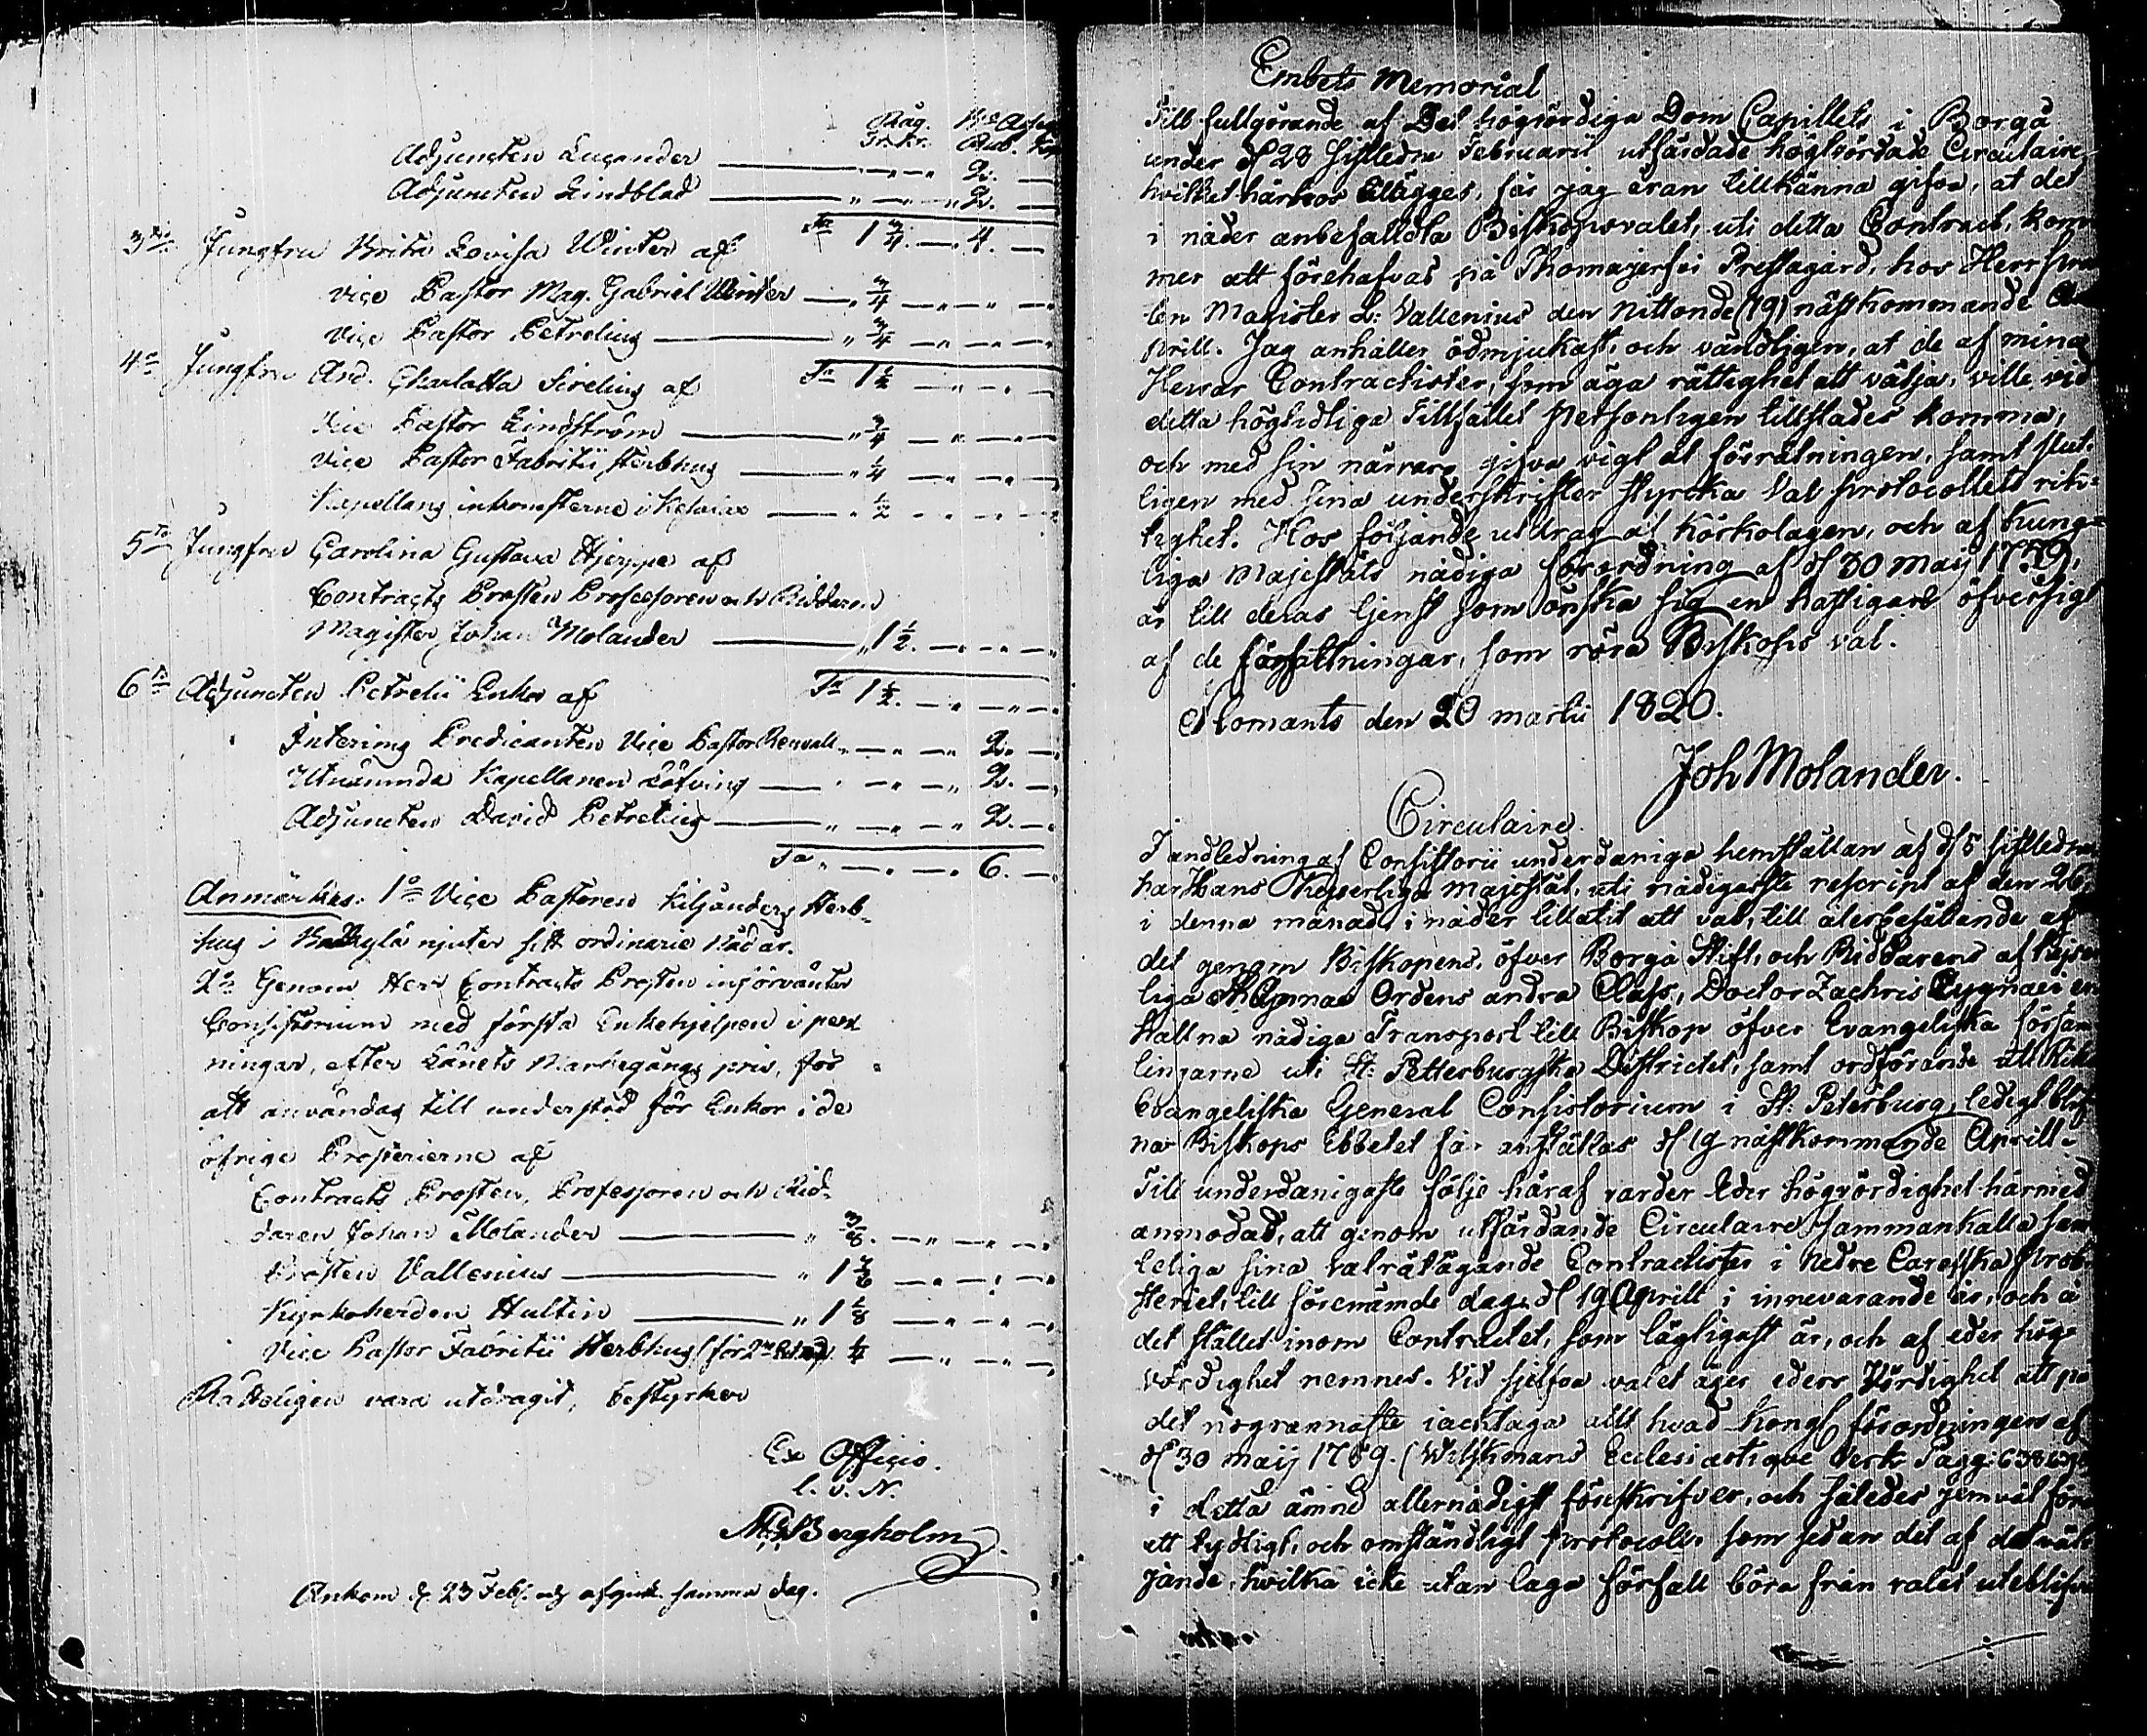 Råg. B:co Assign.
Tr. kr. Rub. Kop
Adjuncten Lucander — „ — „ 2. —
Adjuncten Lindblad — „ — „ — „ 2. —
S:a 1 3/4. — 4. —
3:tio Jungfru Brita Lovisa Winter af
vice Pastor Mag. Gabriel Winter — „ 3/4 — „ — „ — „
Vice Pastor Petrelius — „ 3/4 — „ — „ — „
S:a 1 1/2 — „ — „ —
4:o Jungfru And. Charlotta Sirelius af
Vice Pastor Lindström — „ 3/4 — „ — „ — „
Vice Pastor Fabritii sterbhus — „ 1/4 — „ — „ — „
Kapellans inkomsterne i — „ 1/2 — „ — „ — „
5:to Jungfru Carolina Gustava Hjeppe af
Contracts Prosten Professoren och Riddaren
Magister Johan Molander — „ 1 1/2. — „ — „ — „
S:a 1 1/2. — „ — „ — „
6:to Adjuncten Petrelii Enka af
Interims Predicanten Vice Pastor Renvall „ — „ — „ 2. — „
Utnämnda Kapellanen Löfving — „ — „ — „ 2. — „
Adjuncten David Petrelius — „ — „ — „ 2. — „
S:a „ — „ — „ 6. — „
Anmärkes. 1:o Vice Pastoren Kiljanders Sterb-
hus i njuter sitt ordinarie Nådår.
2:o Genom Herr Contracts Prosten införväntar
Consistorium med första Enkehjelpen i pen
ningar, efter Länets Markegångs pris, för
att användas till understöd för Enkor i de
öfrige Prosterierne af
Contracts Prosten, Professoren och Rid-
daren Johan Molander — „ 3/8. — „ — „ — „
Prosten Vallenius — „ 1 — „ — „ — „
Kyrkoherden Hultin — „ 1 1/8 — „ — „ — „
Vice Pastor Fabritii Sterbhus (för 2:ne 1/4 — „ — „ — „
Rätteligen vara utdragit, bestyrker
Ex Officio.
l. s. N.
Bergholm
Ankom d. 23 Feb. och afgick samma dag.
Embets Memorial
Till fullgörande af Det högvördiga Dom Capitlets i Borgå
under d 28 sistledne Februarii utfärdade höglofvade Circulaire,
hvilket härhos bilägges, får jag äran tillkänna gifva, at det
i nåder anbefallda Biskopsvalet, uti detta Contract, kom
mer att förehafvas på Thomajerfvi Prestagård, hos Herr Pros
ten Magister L: Vallenius den Nittonde (19) nästkommande A
prill. Jag anhåller ödmjukast, och vändligen, at de af mina
Herrar Contractister, som äga rättighet att välja, ville vid
detta högtidliga Tillfället personligen tillstädes komma,
och med sin närvaro gifva vigt åt förrätningen, samt slut-
ligen med sina underskrifter styrcka Val protocollets rik-
tighet. Hos följande utdrag af Körkolagen, och af Kung-
liga Majestäts nådiga förordning af d 30 Maij 1759,
är till deras tjenst som önska sig en hastigare öfversigt
af de författningar, som röra Biskops val.
Ilomants den 20 Martii 1820.
Joh Molander.
Circulaire.
I andledning af Consistorii underdåniga hemställan af d 5 sistledne
har Hans Kejserliga Majestät, uti nådigaste rescript af den 26
i denna månad, i nåder tillåtit att val, till återbesättande af
det genom Biskopens, öfver Borgå Stift, och Riddarens af Kejser
liga St. Annae Ordens andra Class, Doctor Zachris Cygnaei er
hållna nådiga Transport till Biskop öfver Evangeliska försam
lingarne uti St: Petterburgska Districtet, samt ordförande uti Riks
Evangeliska General Consistorium i St. Petersburg, ledigt blif
na Biskops Ebbetet får anställas d 19 nästkommande Aprill.
Till underdånigaste följe häraf varder Eder högvördighet härmed
anmodad, att genom utfärdande Circulaire sammankalla sam
teliga sina valrätägande Contractister i Nedre Carelska Prob
steriet, till förenämde dag d 19 Aprill i innevarande år, och å
det stället inom Contractet, som lägligast är, och af eder hög-
vördighet nemnes. Vid sjelfva valet äger eders Vördighet att på
det nogrannaste iacktaga allt hvad Kongl. förordningen af
d 30 Maij 1759. (Wilskmans Ecclesiastique Verk Pagg: 638
i detta ämne allernådigst föreskrifver, och således jemväl föra
ett tydligt, och omständligt Protocoll, som sedan det af de väl
jande, hvilka icke utan laga förfall böra från valet uteblifva